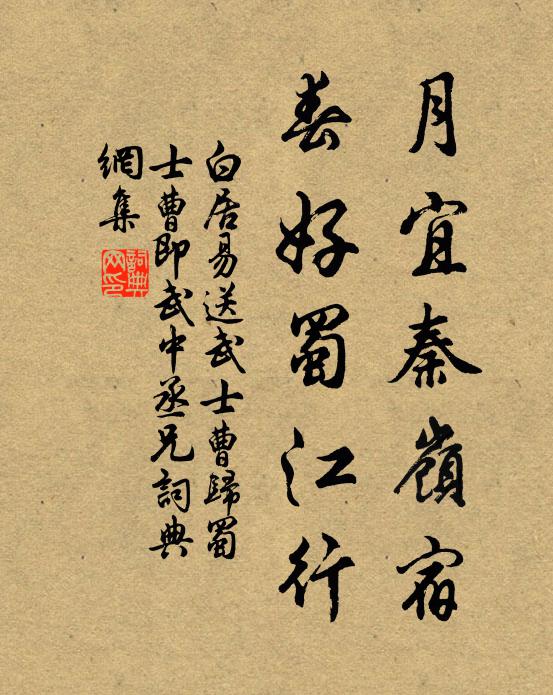 月宜秦嶺宿
春好蜀江行
白居易送武士曹歸蜀
士曹即武中丞兄詞典
網集
詞典
网印